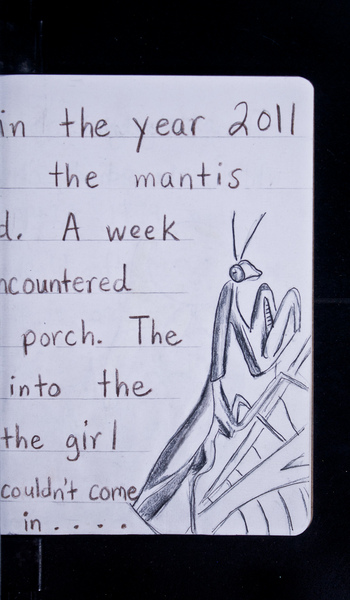 in the year 2011
the mantis
d. A week
ncountered
porch. The
into the
the girl
couldn't come
in . . . .